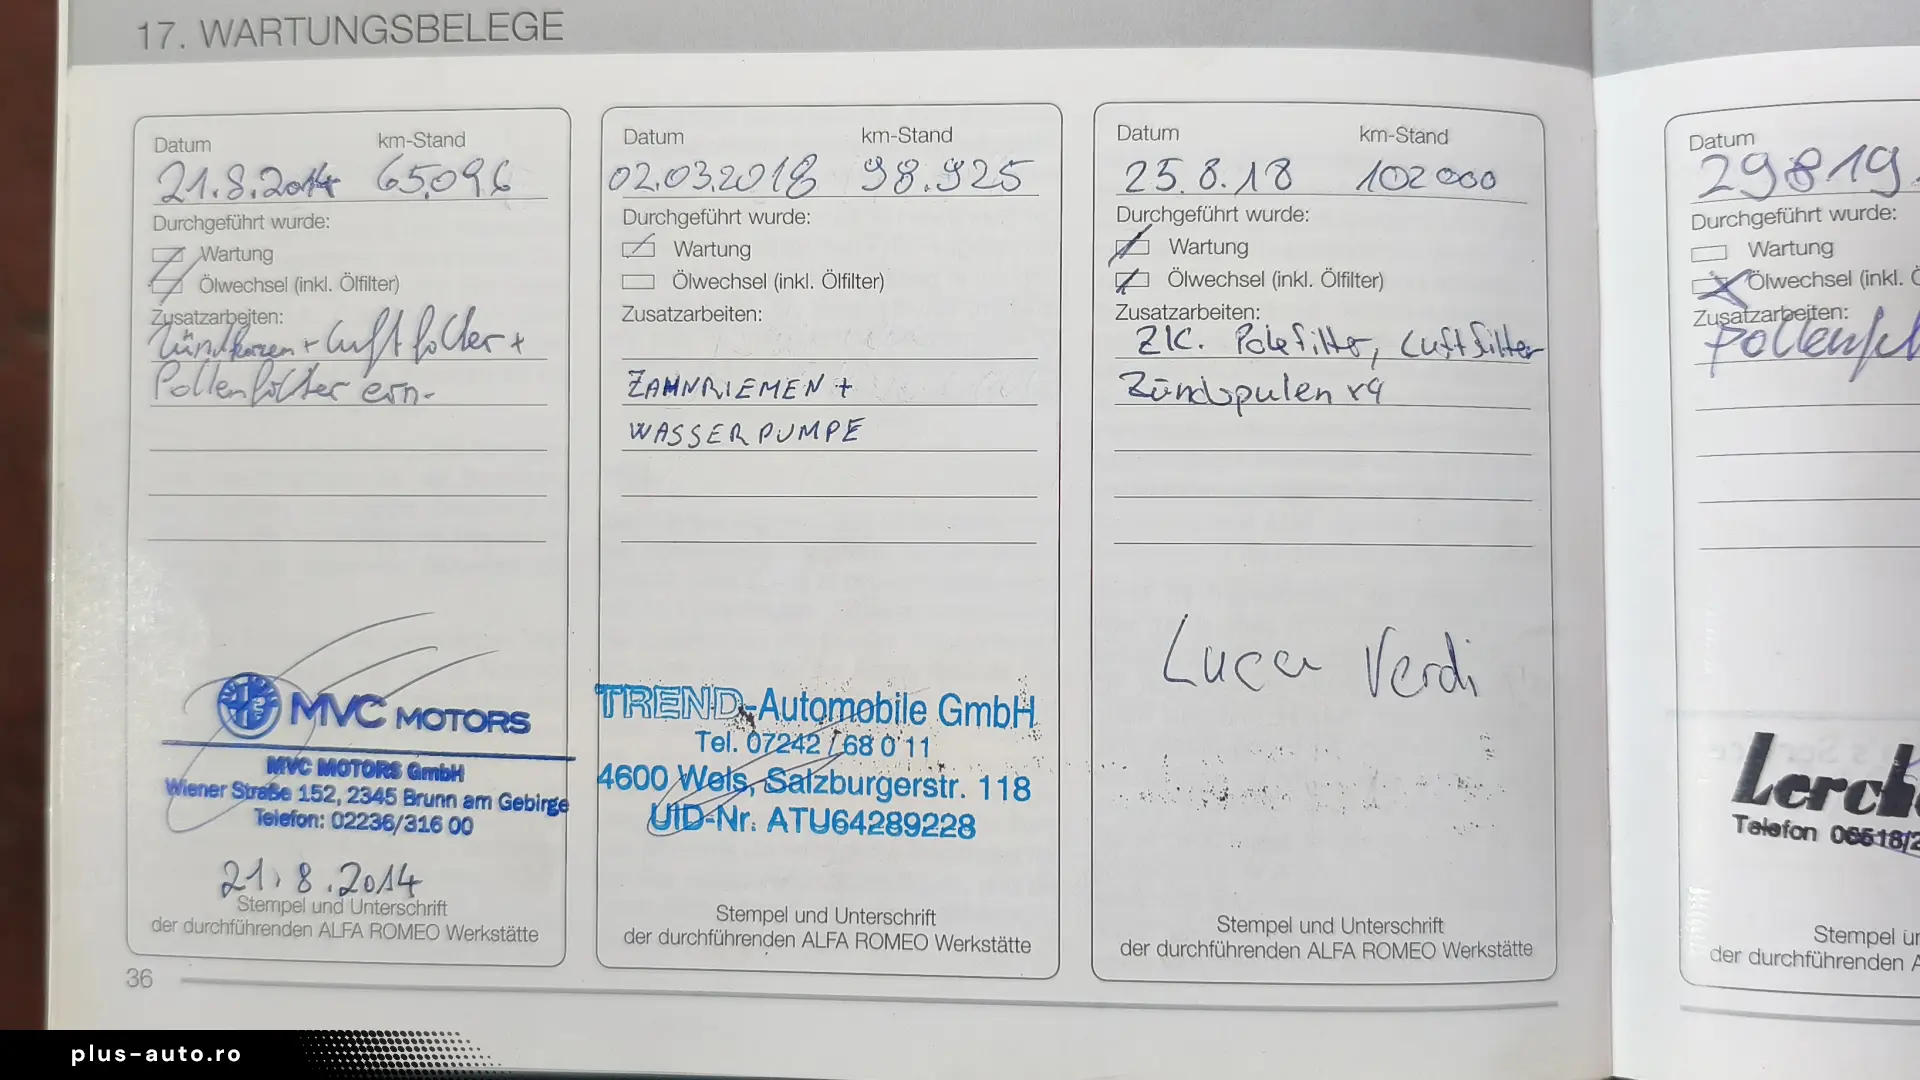 17. WARTUNGSBELEGE
Datum km-Stand
21.8.2014 65.096
Durchgeführt wurde:
Wartung
Ölwechsel (inkl. Ölfilter)
Zusatzarbeiten:
Zündkerzen + Luftfilter +
Pollenfilter ern.
MVC MOTORS
MVC MOTORS GmbH
Wiener Straße 152, 2345 Brunn am Gebirge
Telefon: 02236/316 00
21.8.2014
Stempel und Unterschrift
der durchführenden ALFA ROMEO Werkstätte
36
Datum km-Stand
02.03.2018 98.925
Durchgeführt wurde:
Wartung
Ölwechsel (inkl. Ölfilter)
Zusatzarbeiten:
ZAHNRIEMEN +
WASSERPUMPE
TREND-Automobile GmbH
Tel. 07242 / 68 0 11
4600 Wels, Salzburgerstr. 118
UID-Nr. ATU64289228
Stempel und Unterschrift
der durchführenden ALFA ROMEO Werkstätte
Datum km-Stand
25.8.18 102000
Durchgeführt wurde:
Wartung
Ölwechsel (inkl. Ölfilter)
Zusatzarbeiten:
ZK. Polefilter, Luftfilter
Zündspulen x4
Luca Verdi
Stempel und Unterschrift
der durchführenden ALFA ROMEO Werkstätte
Datum
29 8 19
Durchgeführt wurde:
Wartung
Ölwechsel (inkl.
Zusatzarbeiten:
Lerch
Telefon 06518/2
Stempel un
der durchführenden A
plus-auto.ro